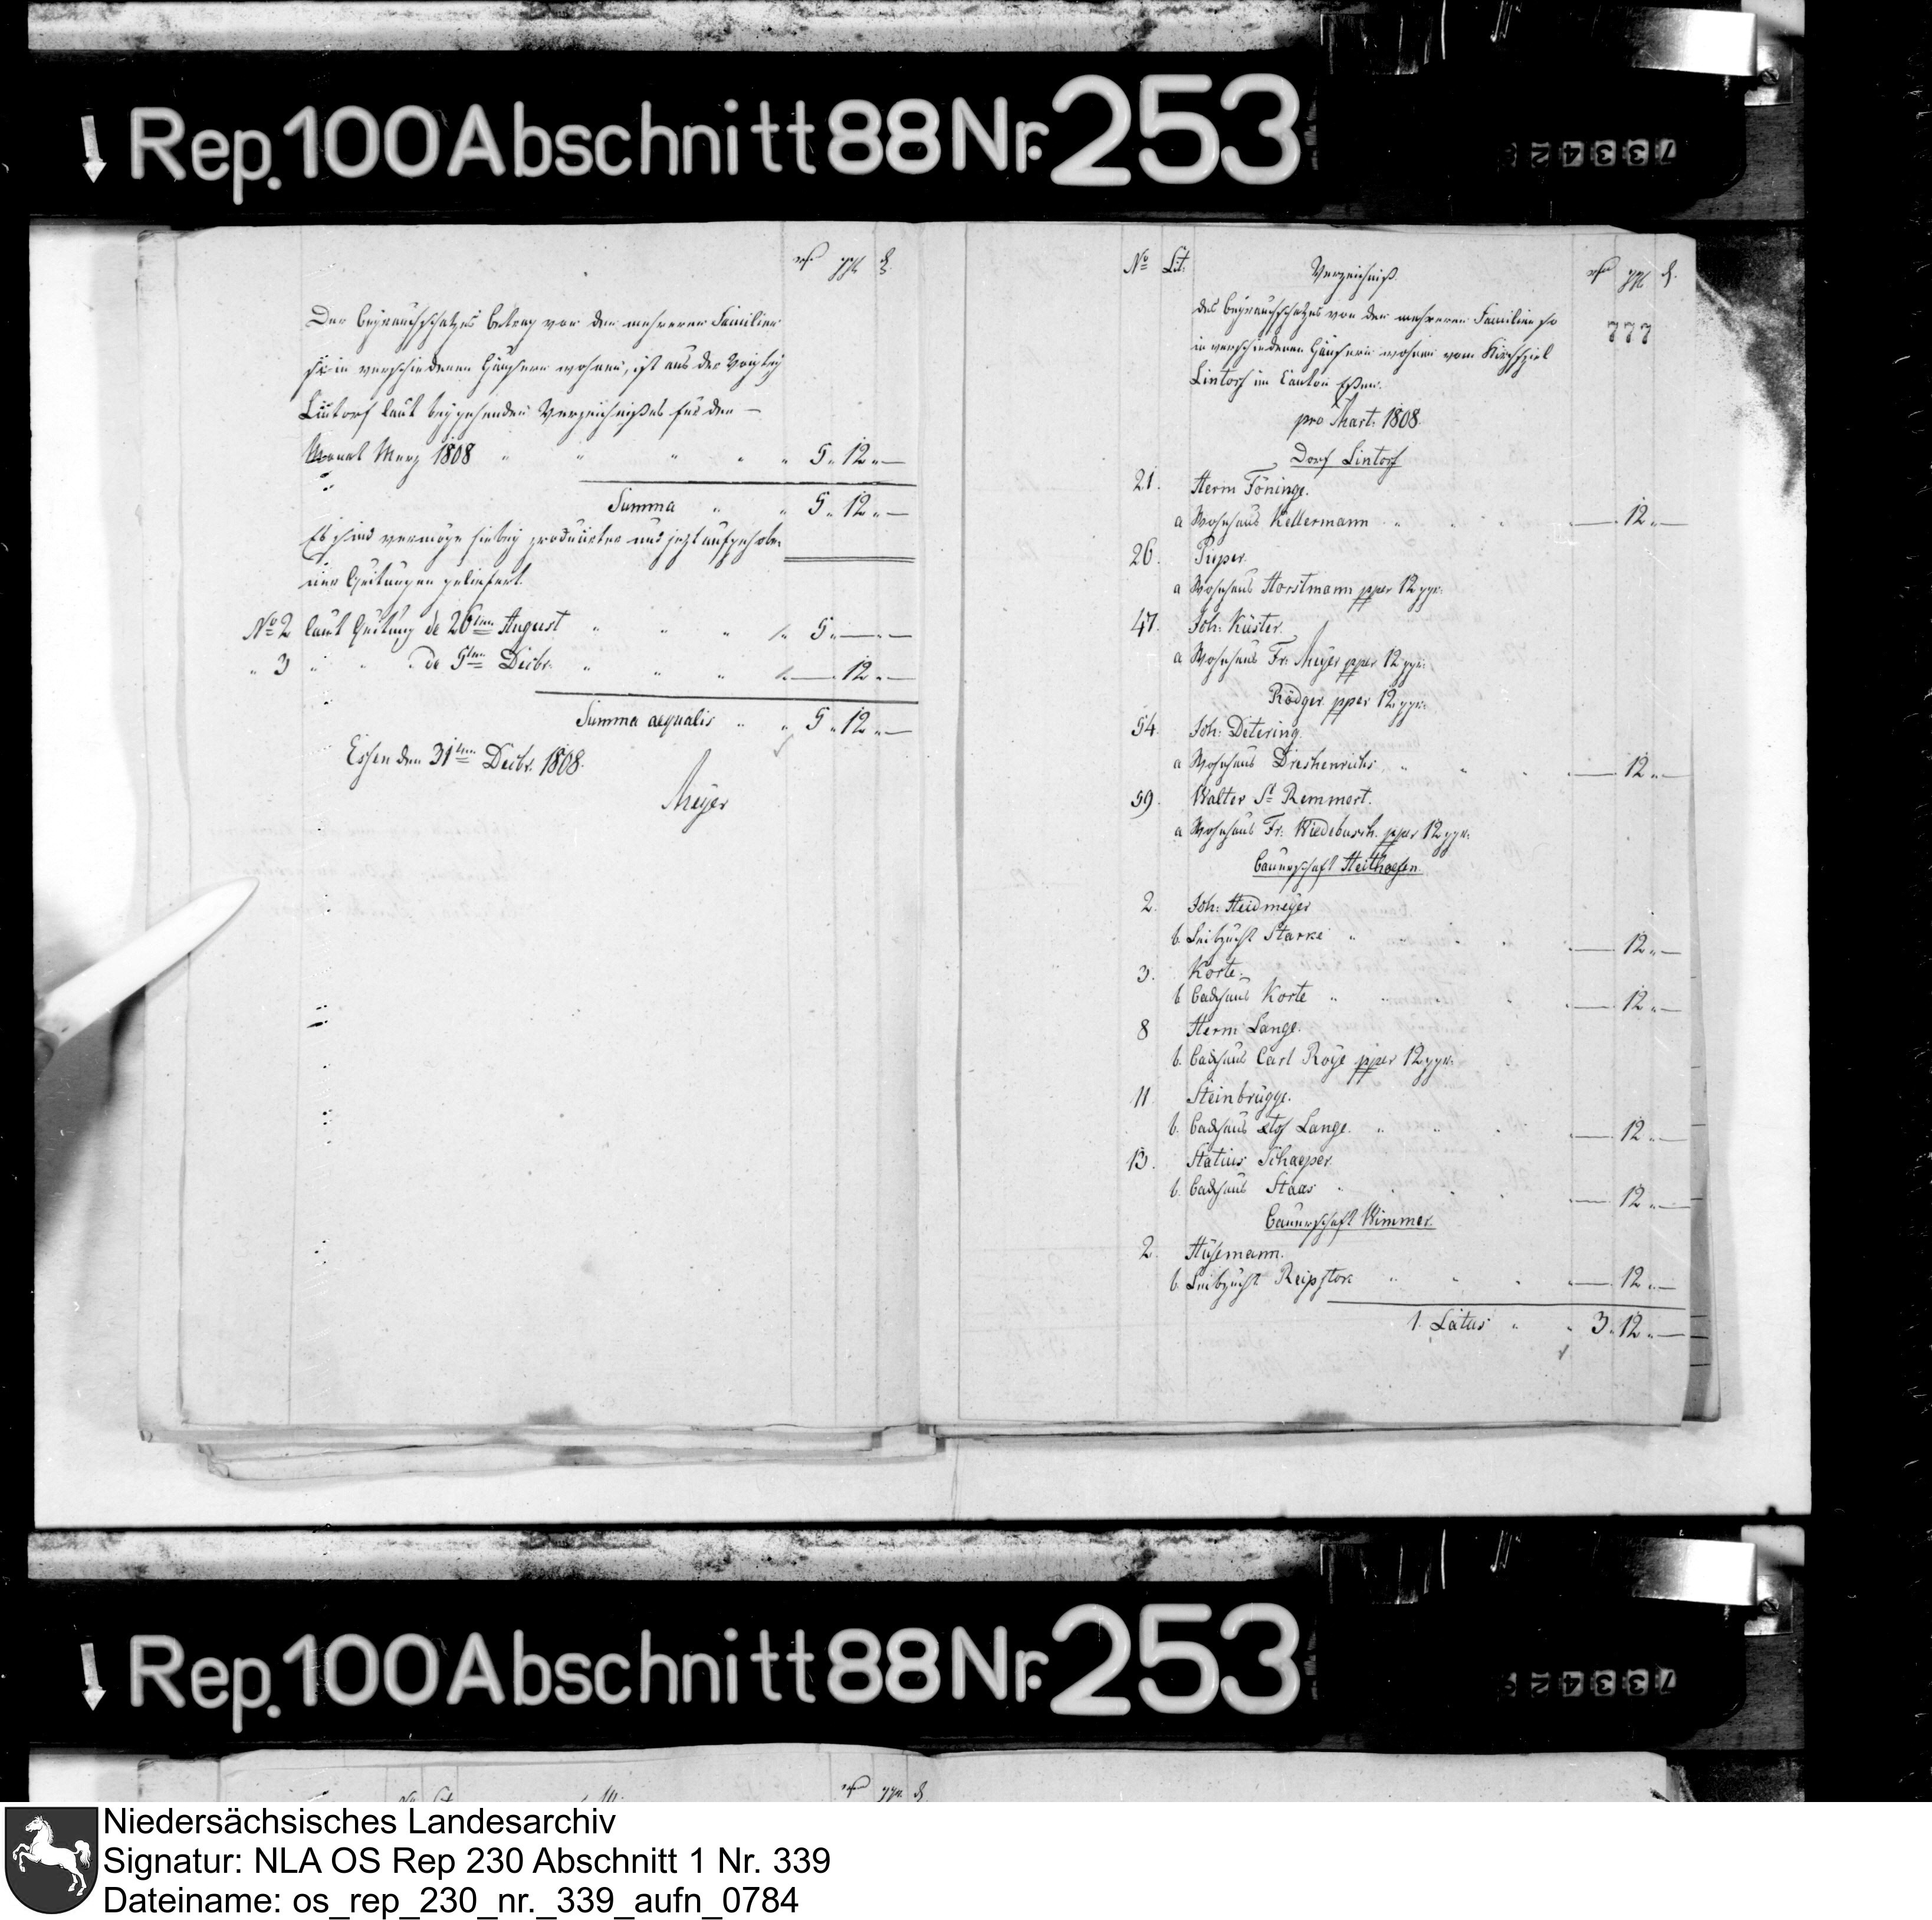 Rep. 100 Abschnitt 88 Nr. 253
73342
rthlr ggr ₰
Der Beyrauchschatzes betrag von den mehreren Familien
so in verschiedenen Häusern wohnen, ist aus der Voigtey
Lintorf laut beygehenden Verzeichnißes für den —
Monat Merz 1808 " " " " " 5 " 12 " —
Summa " " 5 " 12 " —
Es sind vermöge hiebey producirter und jezt aufgehobe-
ner Quitungen geliefert.
No 2 laut Quitung de 26ten August " " " 5 " — " —
" 3 " " de 5ten Decbr. " " " — " 12 " —
Summa aequalis " " 5 " 12 " —
Essen den 31ten Decbr. 1808.
Meyer
No Lit: Verzeichniß rthlr ggr ₰.
des Beyrauchschatzes von den mehreren Familien so
in verschiedenen Häusern wohnen vom Kirchspiel
Lintorf im Canton Eßen.
777
pro Mart: 1808.
Dorf Lintorf
21. Herm Föninge.
a Wohnhaus Kellermann " " " — " 12 " —
26. Pieper.
a Wohnhaus Horstmann pper 12 ggr.
47. Joh: Küster.
a Wohnhaus Fr: Meyer pper 12 ggr.
Rödger pper 12 ggr.
54. Joh: Detering.
a Wohnhaus Dreshenrichs " " " — " 12 " —
59. Walter St Remmert.
a Wohnhaus Fr: Wiedebusch. pper 12 ggr.
Bauerschaft Heithoefen.
2. Joh: Heidmeyer
b. Leibzucht Starke " " " — " 12 " —
3. Korte.
b Backhaus Korte " " " — " 12 " —
8 Herm Lange.
b. Backhaus Carl Roye pper 12 ggr.
11. Steinbrügge.
b. Backhaus Lange. " " " — " 12 " —
13. Statius Schaeper.
b. Backhaus Staas " " " — " 12 " —
Bauerschaft Wimmer.
2. Hüsemann.
b. Leibzucht " " " — " 12 " —
1. Latus " " 3 " 12 " —
Rep. 100 Abschnitt 88 Nr. 253
73342
No Lit rthlr ggr. ₰.
Niedersächsisches Landesarchiv
Signatur: NLA OS Rep 230 Abschnitt 1 Nr. 339
Dateiname: os_rep_230_nr._339_aufn_0784